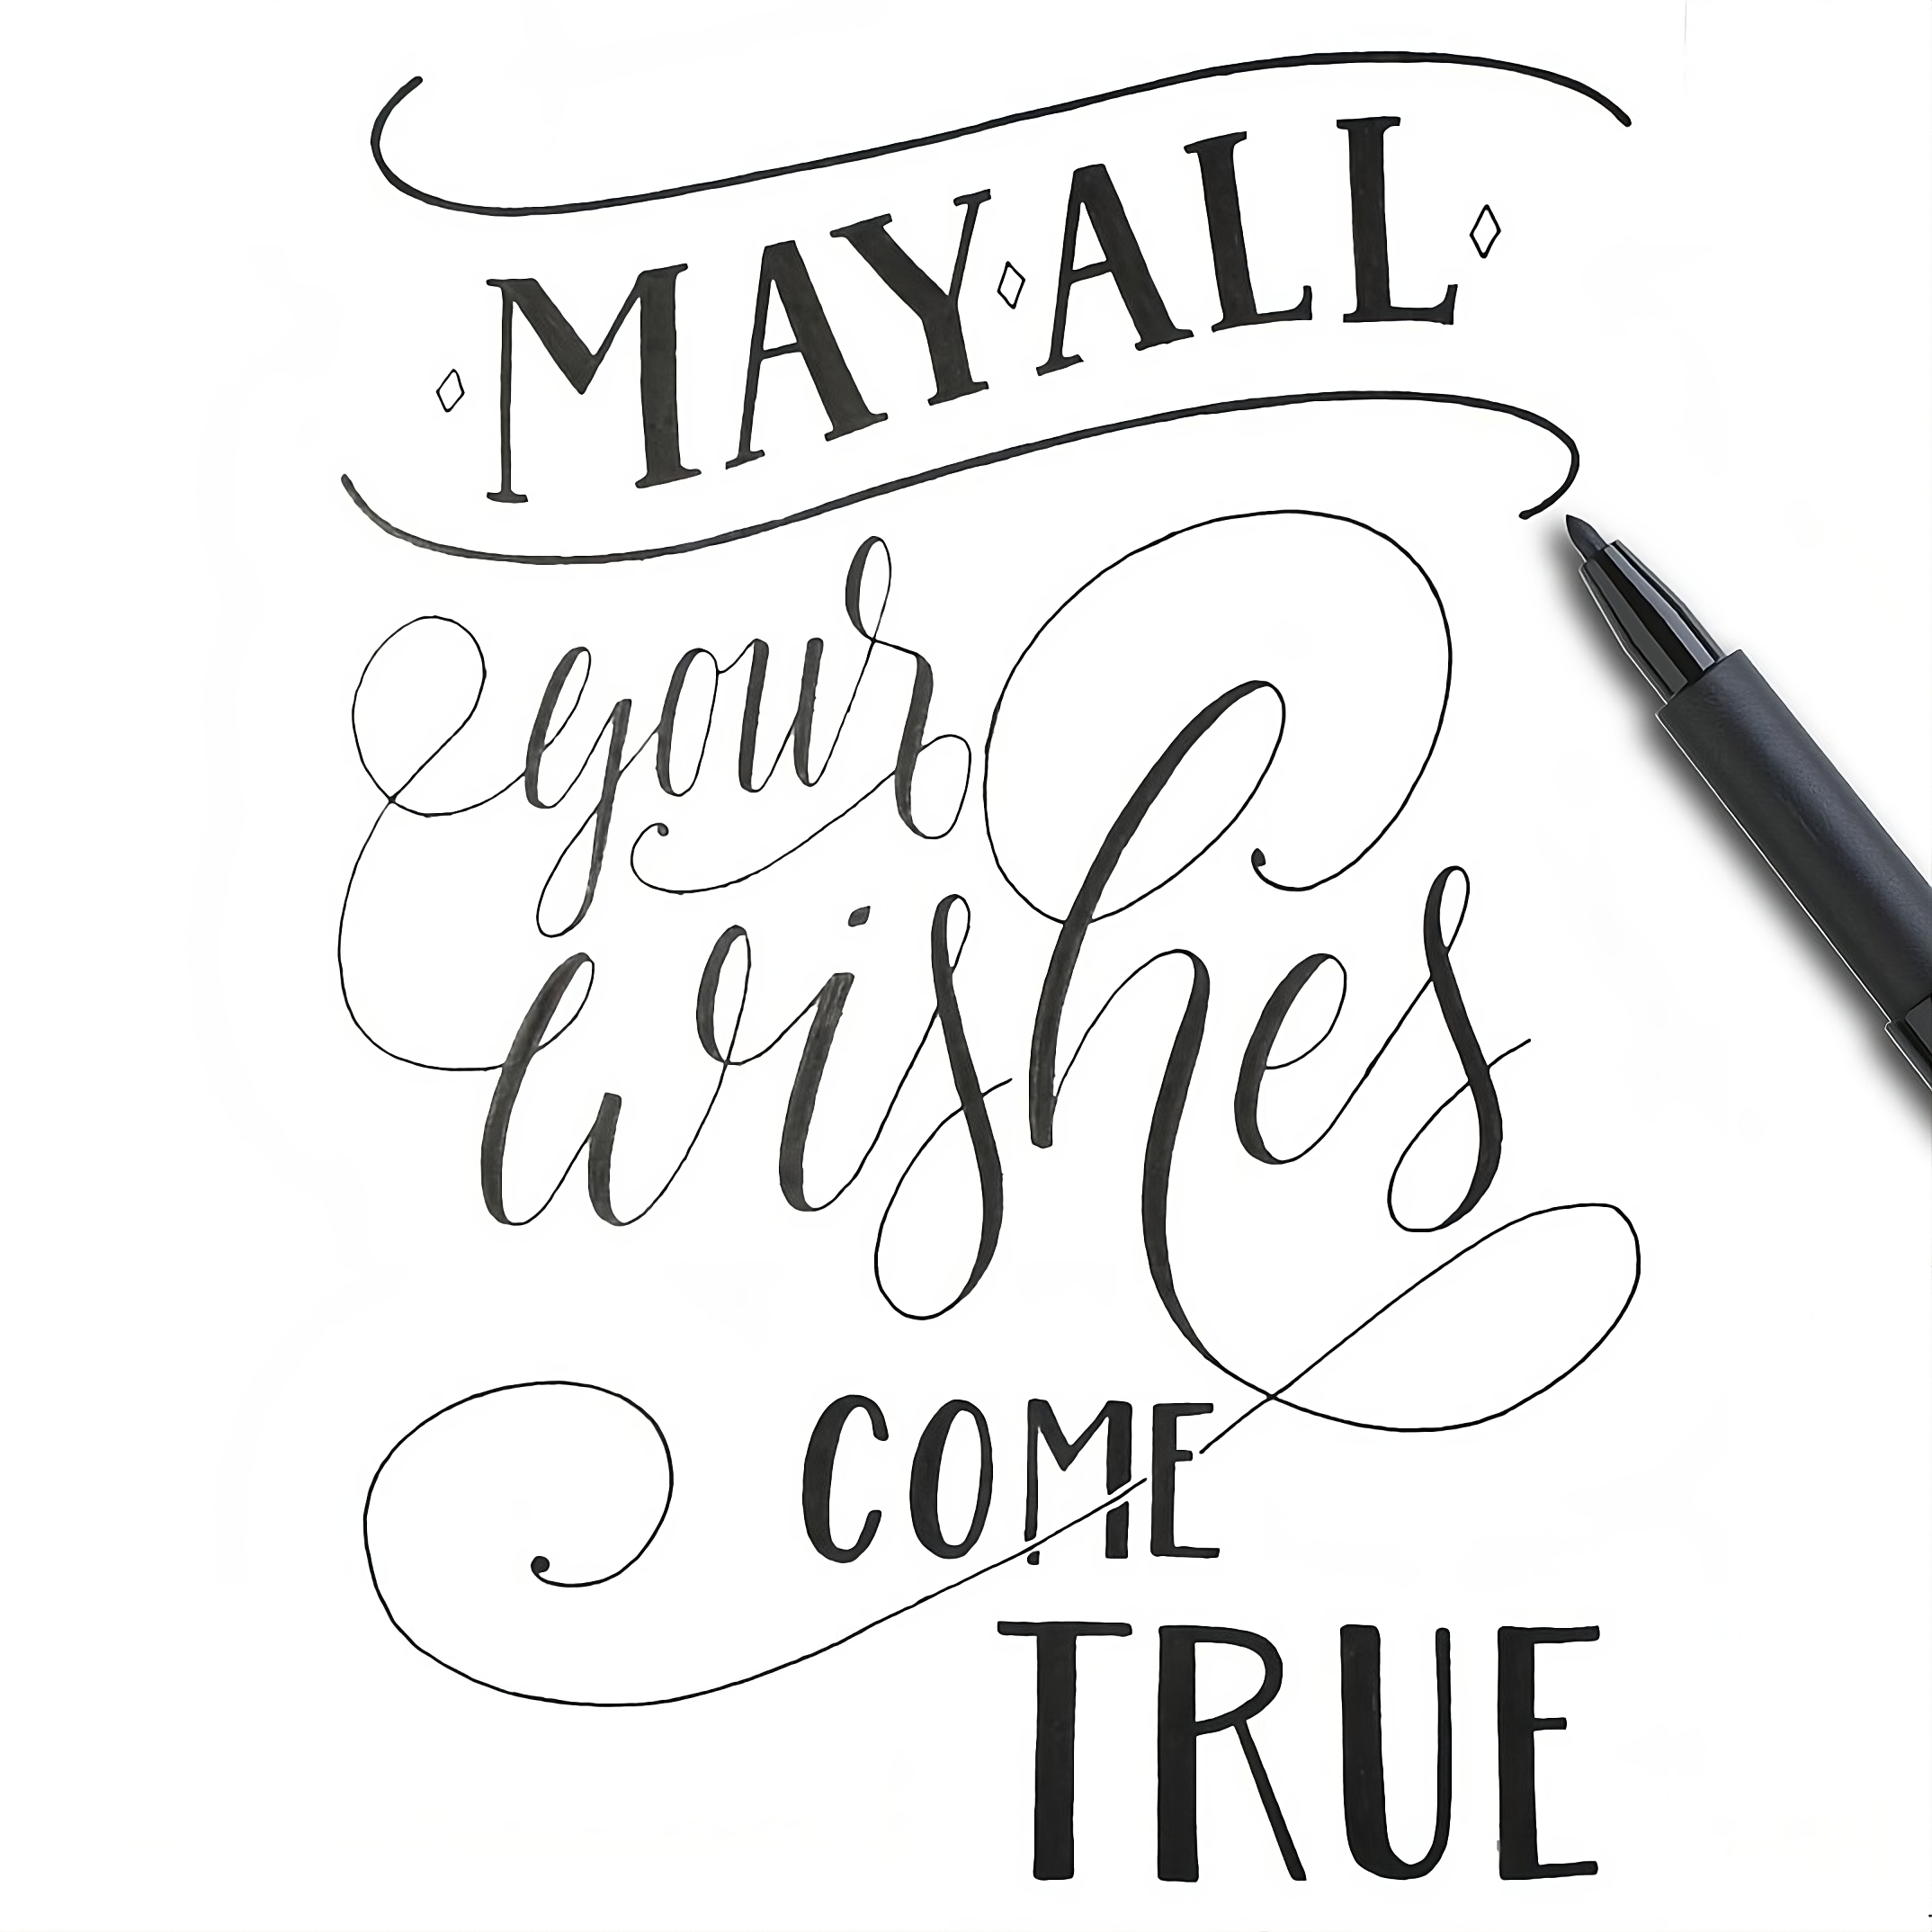 MAY ALL
your
wishes
COME
TRUE